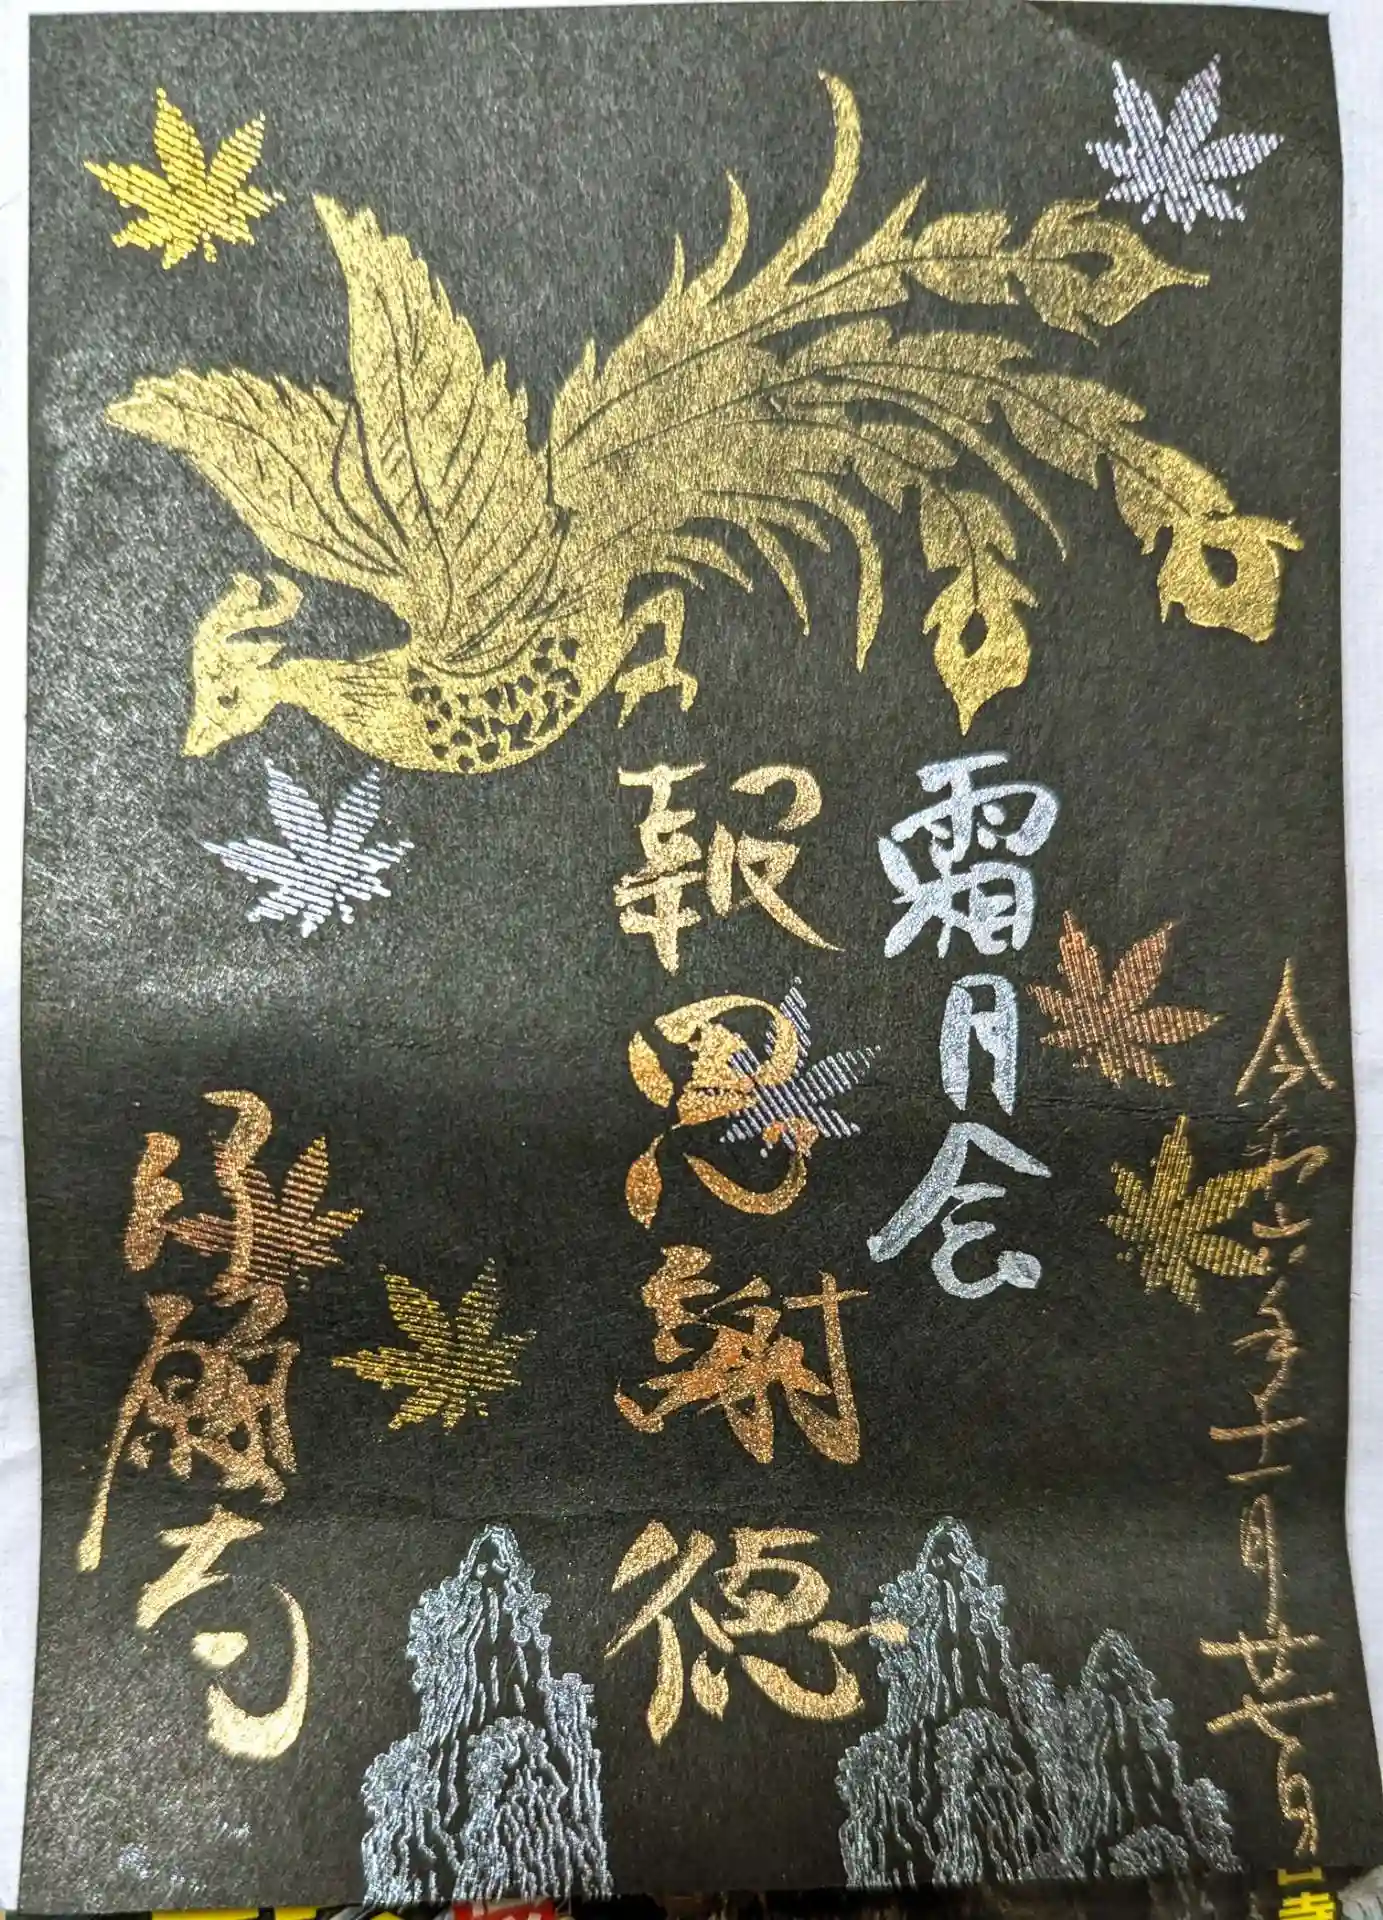 令和六年十一月廿七日
霜月会
報恩謝徳
願寺